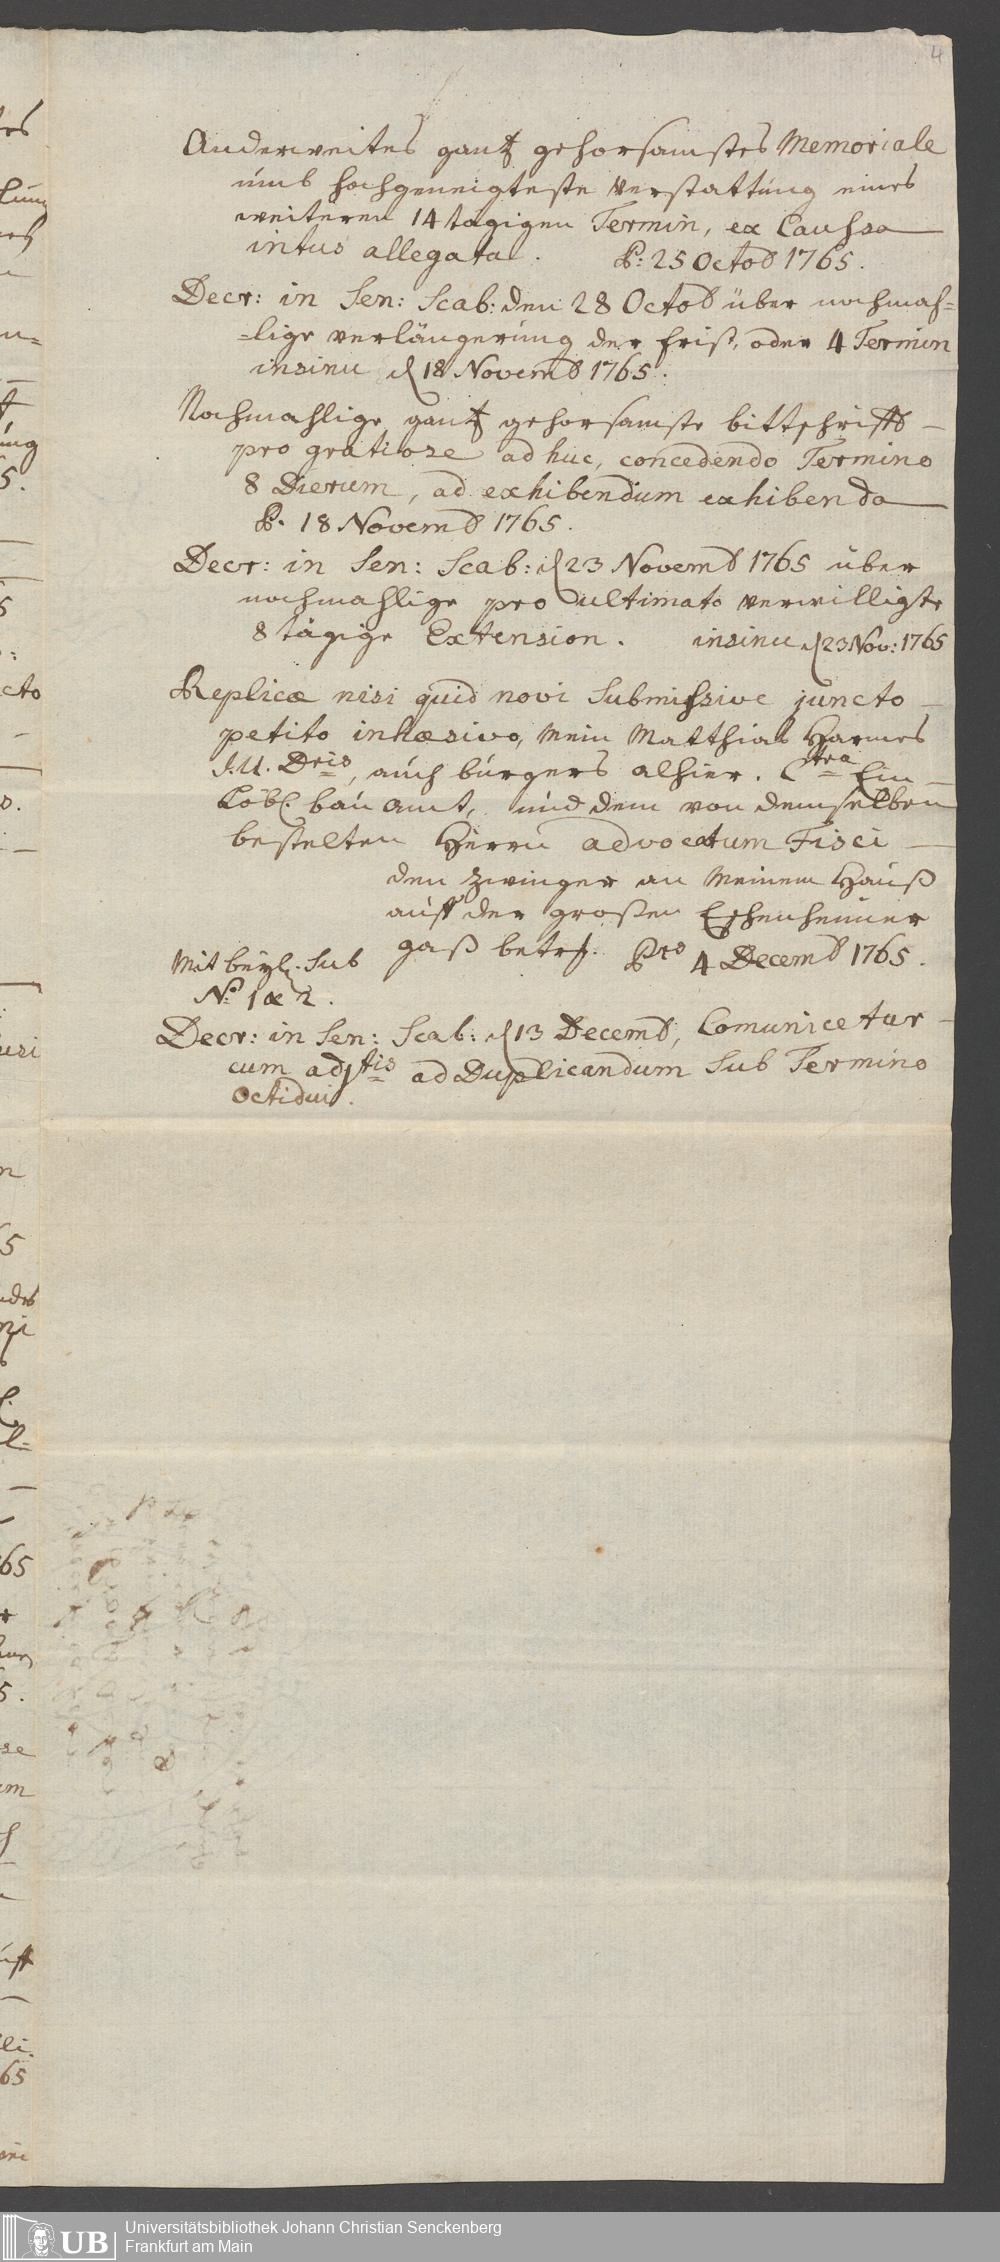 4
Anderweites gantz gehorsamstes Memoriale
umb hochgeneigteste Verstattung eines
weiteren 14 tägigen Termin, ex Caussa
intus allegata. P: 25 Octob 1765.
Decr: in Sen: Scab: den 28 Octob über nochmah=
=lige verlängerung der frist, oder 4 Termin
insinu d 18 Novemb 1765.
Nochmahlige gantz gehorsamste bittschrifft
pro gratiose ad huc, concedendo Termino
8 Dierum, ad exhibendum exhibenda
P. 18 Novemb 1765.
Decr: in Sen: Scab: d 23 Novemb 1765 über
nochmahlige pro ultimato verwilligte
8 tägige Extension. insinu d 23 Nov: 1765
Replicæ nisi quid novi Submissive juncto
petito inhæsivo, Mein Matthias Harmes
J. U. Dris, auch burgers alhier. Ctra Ein
Löbl. bau amt, und dem von demselben
bestelten Herrn advocatum Fisci
den Zwinger an Meinem Hauß
auff der großen Eschenheimer
gaß betrf. Pto 4 Decemb 1765.
Mit beyl. Sub
No. 1 & 2.
Decr: in Sen: Scab: d 13 Decemb, Comunicetur
cum adjtis ad Duplicandum Sub Termino
Octidui.
UB
Universitätsbibliothek Johann Christian Senckenberg
Frankfurt am Main